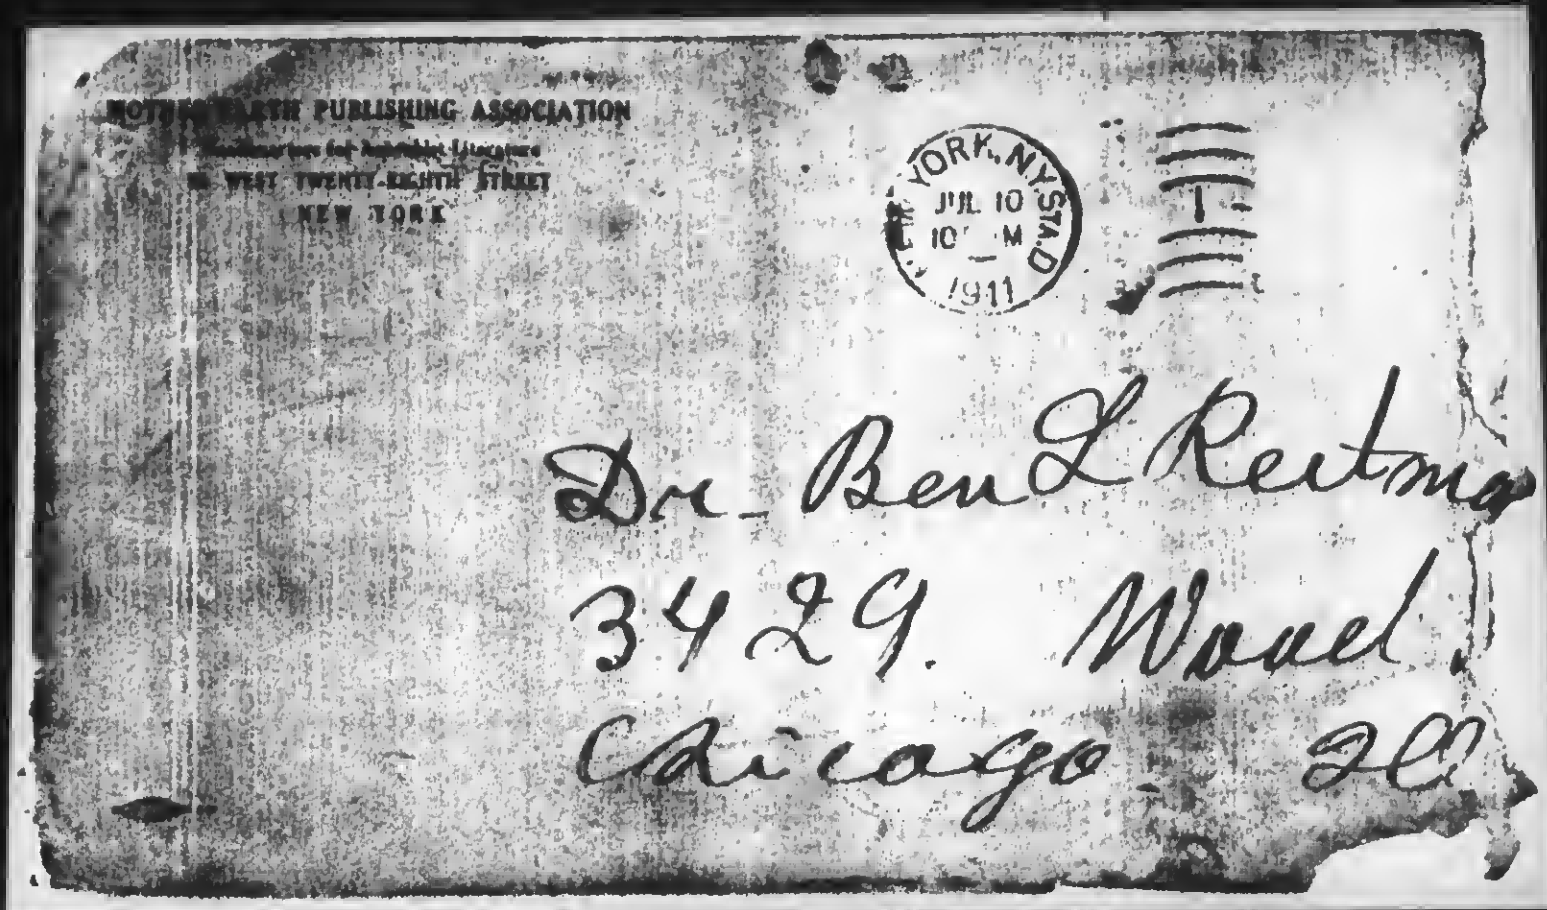 MOTHER EARTH PUBLISHING ASSOCIATION
for Literature
WEST TWENTY-EIGHTH STREET
NEW YORK
YORK, N.Y. STA. D
JUL 10
10 M
1911
1
Dr. Ben L Reitma
3429. Wood.
Chicago Ill